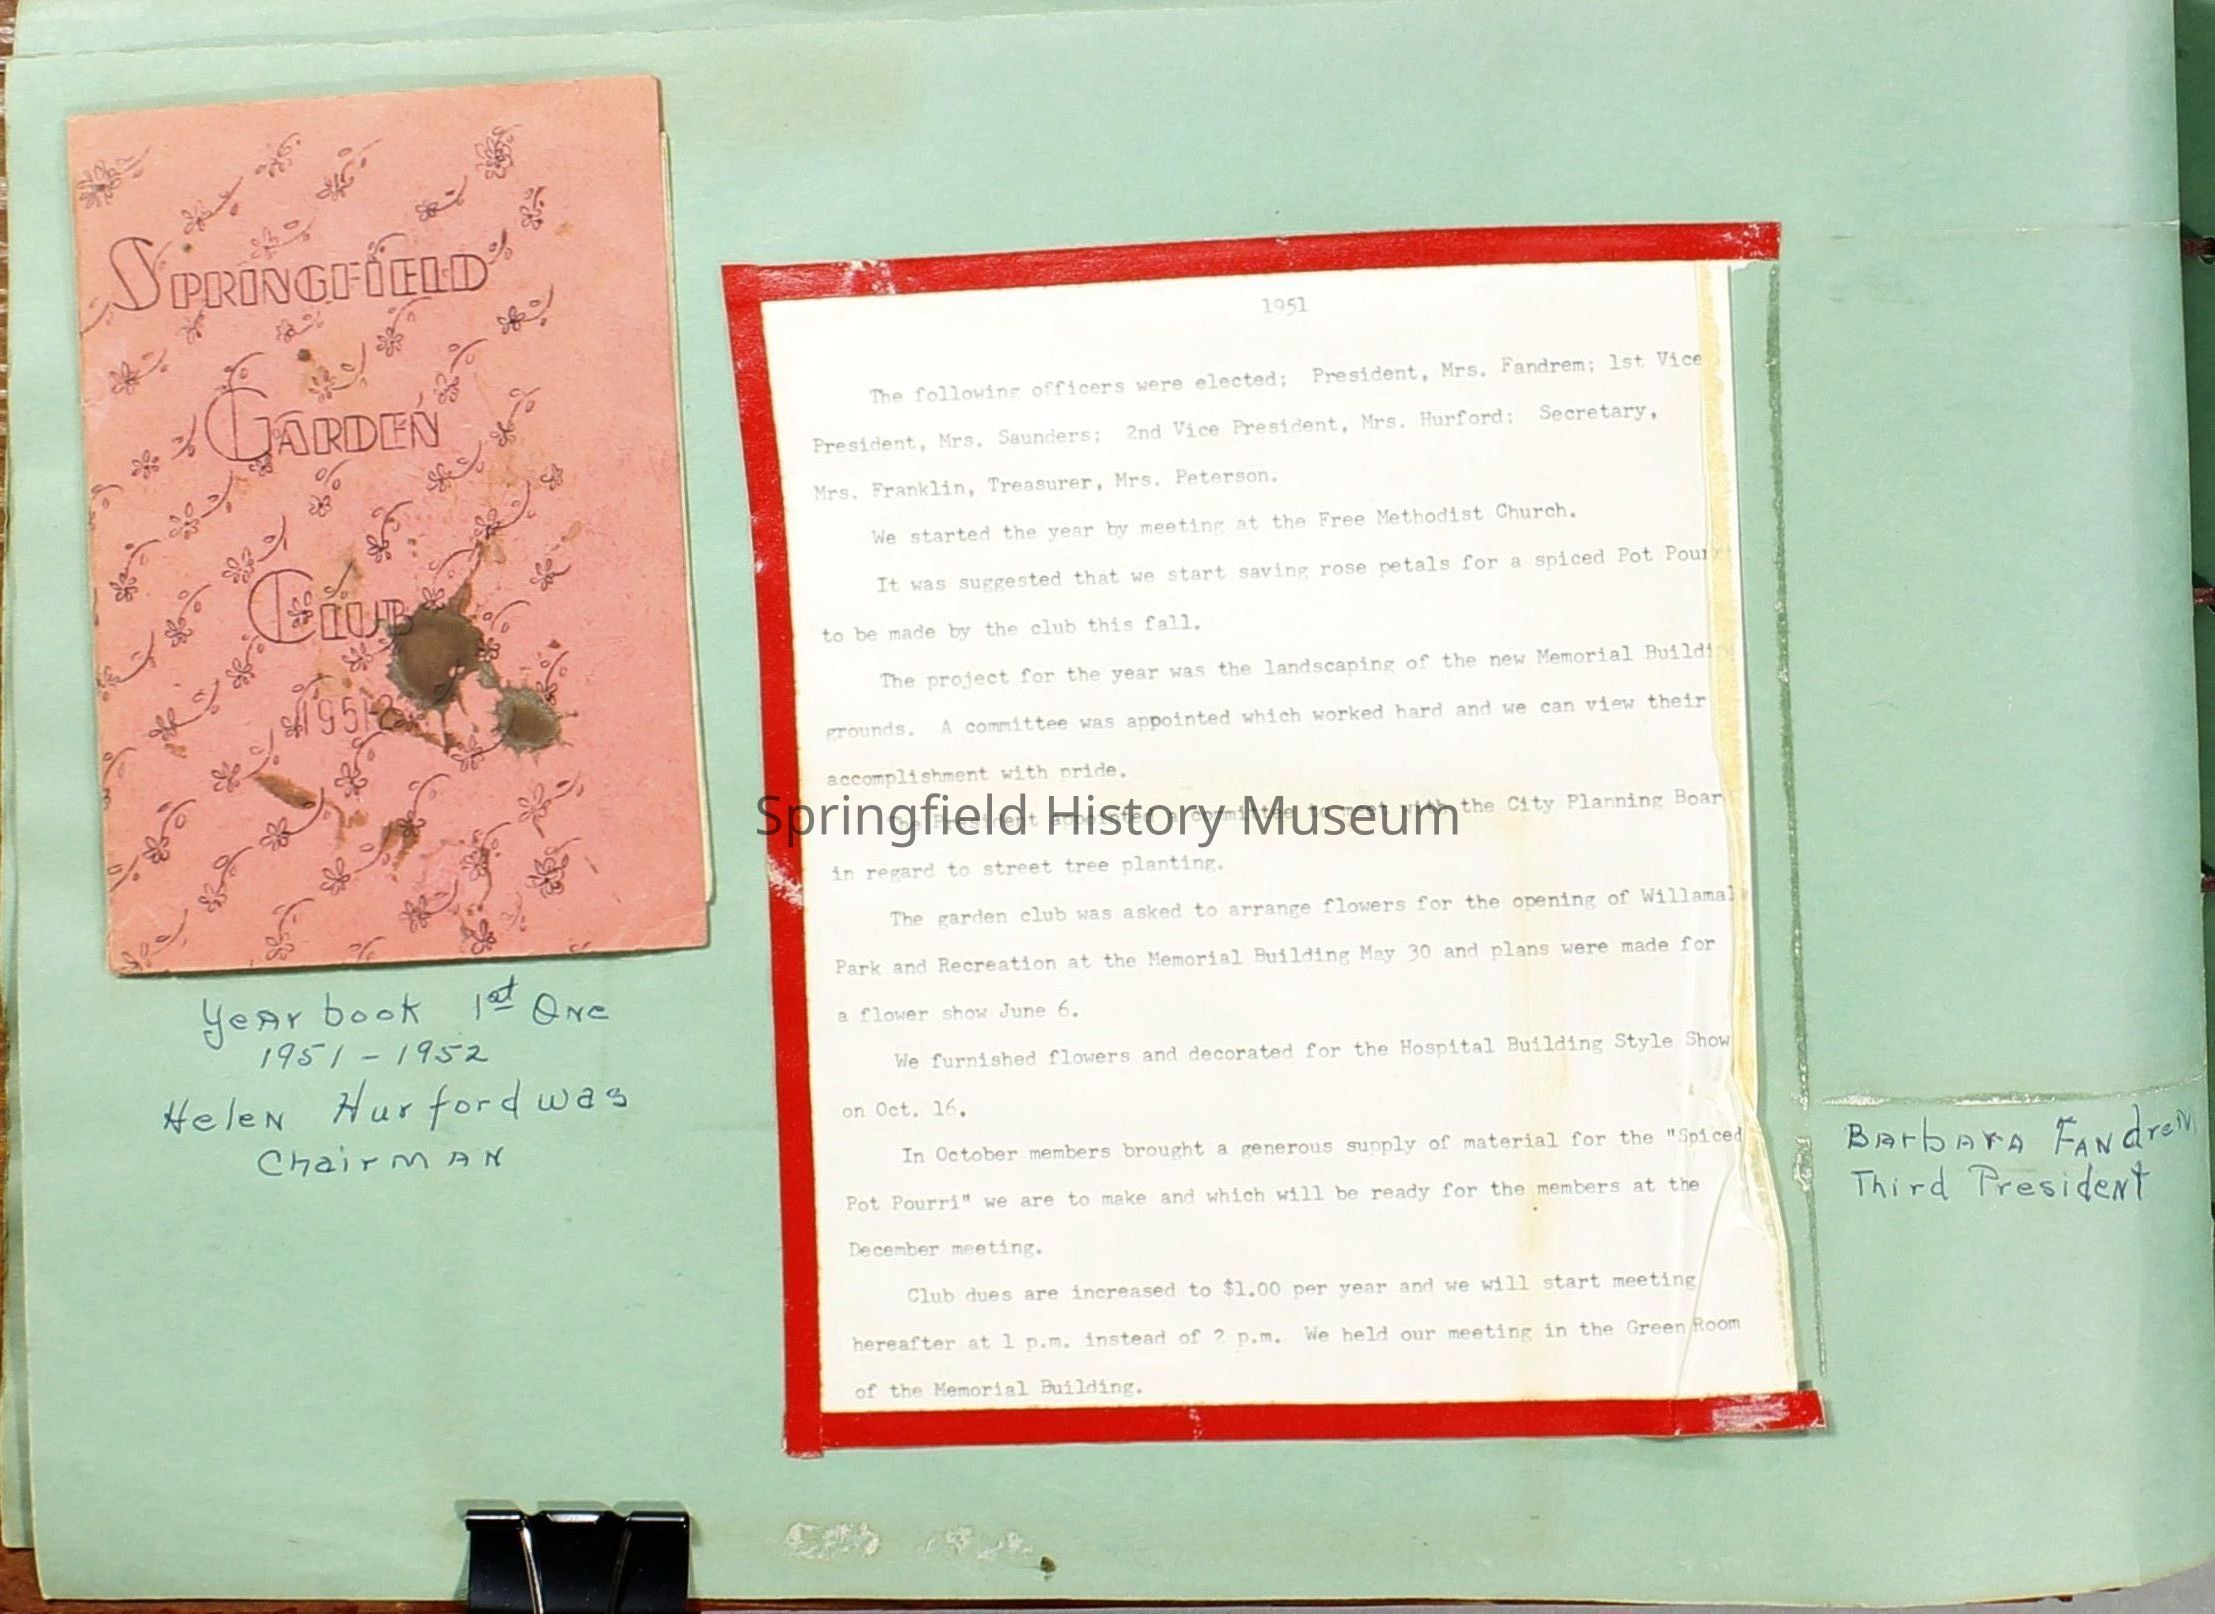 SPRINGFIELD
GARDEN
CLUB
Year book 1st One
1951 - 1952
Helen Hurford was
Chairman
1951
The following officers were elected; President, Mrs. Fandrem; 1st Vice
President, Mrs. Saunders; 2nd Vice President, Mrs. Hurford; Secretary,
Mrs. Franklin, Treasurer, Mrs. Peterson.
We started the year by meeting at the Free Methodist Church.
It was suggested that we start saving rose petals for a spiced Pot Pour
to be made by the club this fall.
The project for the year was the landscaping of the new Memorial Buildi
grounds. A committee was appointed which worked hard and we can view their
accomplishment with pride.
The President appointed a committee to meet with the City Planning Boar
in regard to street tree planting.
The garden club was asked to arrange flowers for the opening of Willamal
Park and Recreation at the Memorial Building May 30 and plans were made for
a flower show June 6.
We furnished flowers and decorated for the Hospital Building Style Show
on Oct. 16.
In October members brought a generous supply of material for the "Spiced
Pot Pourri" we are to make and which will be ready for the members at the
December meeting.
Club dues are increased to $1.00 per year and we will start meeting
hereafter at 1 p.m. instead of 2 p.m. We held our meeting in the Green Room
of the Memorial Building.
Springfield History Museum
Barbara Fandrem
Third President